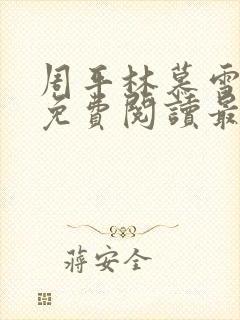 周平林慕雪
免費閱讀最
蔣安全